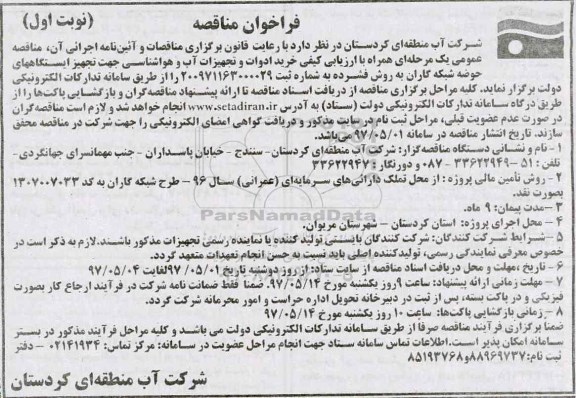 فراخوان مناقصه
(نوبت اول)
شرکت آب منطقه‌ای کردستان در نظر دارد با رعایت قانون برگزاری مناقصات و آئین‌نامه اجرائی آن، مناقصه
عمومی یک مرحله‌ای همراه با ارزیابی کیفی خرید ادوات و تجهیزات آب و هواشناسی جهت تجهیز ایستگاههای
حوضه شبکه گاران به روش فشرده به شماره ثبت ۲۰۰۹۷۱۱۶۳۰۰۰۰۲۹ را از طریق سامانه تدارکات الکترونیکی
دولت برگزار نماید. کلیه مراحل برگزاری مناقصه از دریافت اسناد مناقصه تا ارائه پیشنهاد مناقصه‌گران و بازگشایی پاکت‌ها را از
طریق درگاه سامانه تدارکات الکترونیکی دولت (ستاد) به آدرس www.setadiran.ir انجام خواهد شد و لازم است مناقصه‌گران
در صورت عدم عضویت قبلی، مراحل ثبت نام در سایت مذکور و دریافت گواهی امضای الکترونیکی را جهت شرکت در مناقصه محقق
سازند. تاریخ انتشار مناقصه در سامانه ۹۷/۰۵/۰۱ می‌باشد.
۱- نام و نشانی دستگاه مناقصه‌گزار: شرکت آب منطقه‌ای کردستان- سنندج - خیابان پاسداران - جنب مهمانسرای جهانگردی-
تلفن: ۵۱ -۳۳۶۲۲۹۴۹ - ۰۸۷ و دورنگار: ۳۳۶۲۲۹۴۷
۲- روش تأمین مالی پروژه: از محل تملک دارائی‌های سرمایه‌ای (عمرانی) سال ۹۶ - طرح شبکه گاران به کد ۱۳۰۷۰۰۷۰۳۳
بصورت نقد.
۳-مدت پیمان: ۹ ماه.
۴- محل اجرای پروژه: استان کردستان - شهرستان مریوان.
۵- شرایط شرکت کنندگان: شرکت کنندگان بایستی تولید کننده یا نماینده رسمی تجهیزات مذکور باشند. لازم به ذکر است در
خصوص معرفی نمایندگی رسمی، تولیدکننده اصلی باید نسبت به حسن انجام تعهدات متعهد گردد.
۶- تاریخ ،مهلت و محل دریافت اسناد مناقصه از سایت ستاد: از روز دوشنبه تاریخ ۹۷/۰۵/۰۱ لغایت ۹۷/۰۵/۰۴
۷- مهلت زمانی ارائه پیشنهاد: ساعت ۹ روز یکشنبه مورخ ۹۷/۰۵/۱۴. ضمناً فقط ضمانت نامه شرکت در فرآیند ارجاع کار بصورت
فیزیکی و در پاکت بسته، پس از ثبت در دبیرخانه تحویل اداره حراست و امور محرمانه شرکت گردد.
۸- زمانی بازگشایی پاکت‌ها: ساعت ۱۰ روز یکشنبه مورخ ۹۷/۰۵/۱۴
ضمنا برگزاری فرآیند مناقصه صرفا از طریق سامانه تدارکات الکترونیکی دولت می باشد و کلیه مراحل فرآیند مذکور در بستر
سامانه امکان پذیر است.اطلاعات تماس سامانه ستاد جهت انجام مراحل عضویت در سامانه: مرکز تماس: ۰۲۱۴۱۹۳۴ - دفتر
ثبت نام: ۸۸۹۶۹۷۳۷و۸۵۱۹۳۷۶۸
شرکت آب منطقه‌ای کردستان
ParsNamadData